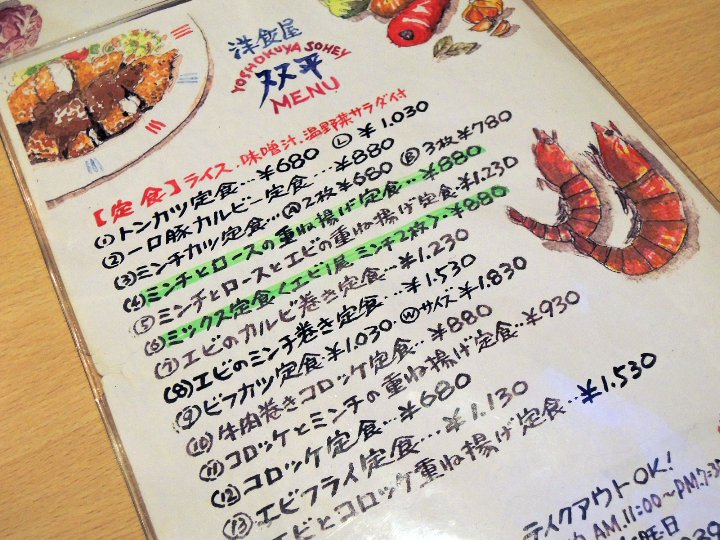 洋食屋
YOSHOKUYA SOHEY
双平
MENU
【定食】ライス・味噌汁、温野菜サラダ付
(1)トンカツ定食…¥680 Ⓛ¥1.030
(2)一口豚カルビー定食…¥880
(3)ミンチカツ定食…Ⓐ2枚¥680 Ⓑ3枚¥780
(4)ミンチとロースの重ね揚げ定食…¥880
(5)ミンチとロースとエビの重ね揚げ定食・¥1.230
(6)ミックス定食<エビ1尾 ミンチ2枚入>¥880
(7)エビのカルビ巻き定食…¥1.230
(8)エビのミンチ巻き定食…¥1.530
(9)ビフカツ定食¥1.030 Ⓦサイズ¥1.830
(10)牛肉巻きコロッケ定食…¥880
(11)コロッケとミンチの重ね揚げ定食…¥930
(12)コロッケ定食…¥680
(13)エビフライ定食…¥1.130
エビとコロッケ重ね揚げ定食…¥1.530
テイクアウトOK!
AM.11:00~PM.7:3
曜日